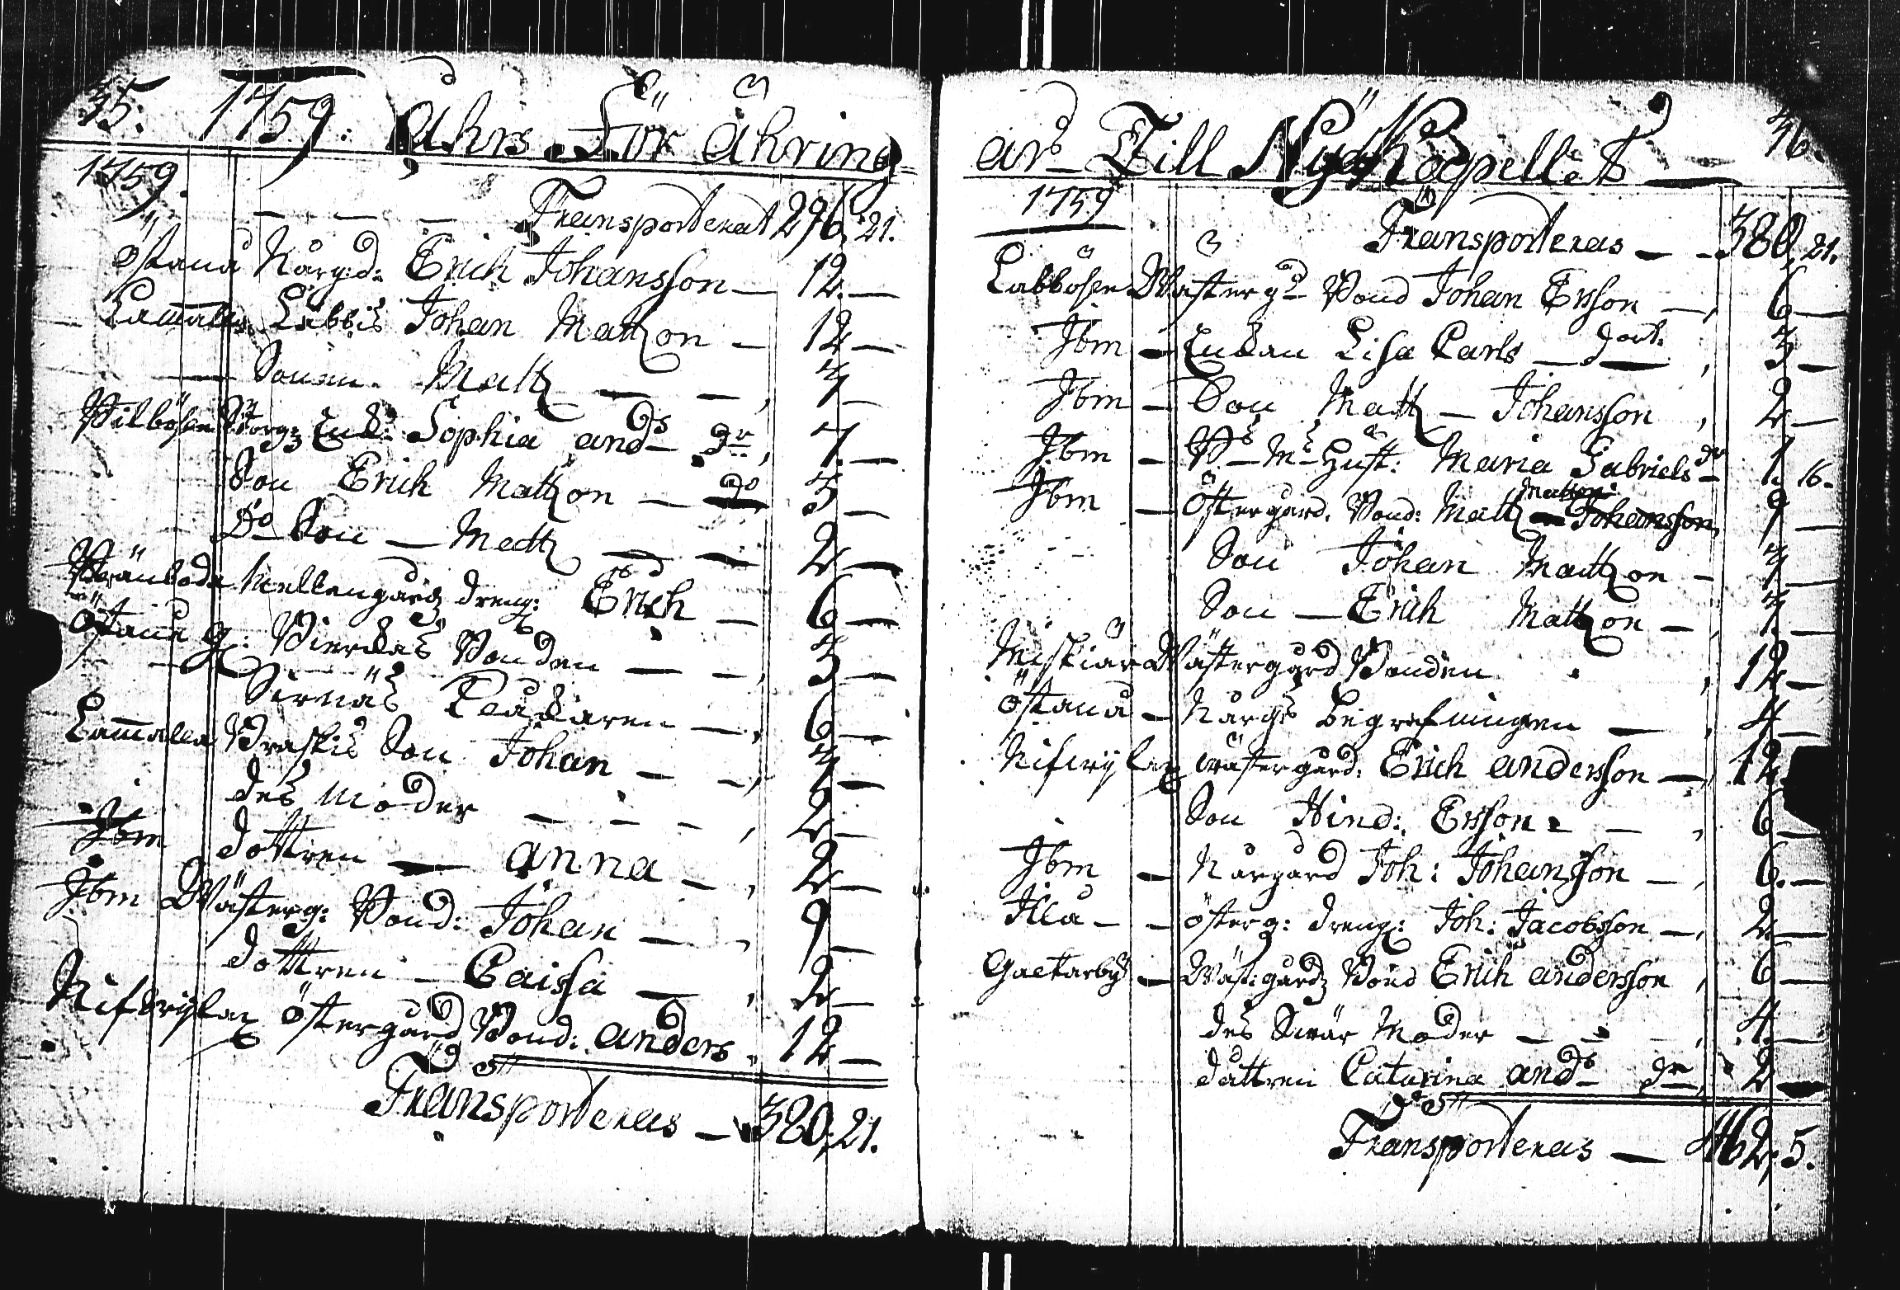 35. 1759. Åhrs För ähring
1759.
Transporterat 296. 21.
Östanå Nårg:d: Erich Johansson — 12. —
Lammala Labbis Johan Mattzon — 12 —
Sonen. Mattz — — 7 —
Pilbösen Norg: Enk: Sophia And:s D:r, 7. —
Son Erich Mattzon — 5 —
D:o Son — Mattz — — 2 —
Mellangårdz dreng: Erich — 6 —
Östanå G: Bonden — — 3 —
— 6 —
Lammala Son Johan — — 7 —
des Moder — — — 2 —
Jbm dottren — Anna — 2 —
Jbm Wästerg: Bond: Johan — 9 —
dottren — Caisa — 2 —
Nifwerlax Östergård Bond: Anders. 12 —
Transporteras — 380, 21.
ar Till Nya Capellet — 36.
1759
Transporteras — 380, 21.
Labbösen Wästerg:d Bond Johan Ersson — 6 —
Jbm — Enkan Lisa Carls — dott: 3 —
Jbm — Son Mattz — Johansson 2 —
Jbm — Hust: Maria Gabriels d:r 1. 16.
Jbm — Östergård. Bond: Mattz Mattzon Johansson, 9 —
Son Johan Mattzon — 7 —
Son — Erich Mattzon — 7. —
Miskiär Wästergård Bonden 12 —
Östanå — Nårgs Begrafningen — 4 —
Nifwerlax Wästergård: Erich Andersson — 12
Son Hind: Ersson — 6 —
Jbm — Nårgård Joh: Johansson — 6. —
Illa — Österg: dreng: Joh: Jacobsson — 2 —
Gaetarby — Wäst:gårdz Bond Erich Andersson 6 —
des Swär Moder — — 4. —
dattren Catarina And:s D:r, 2 —
Transporteras — 462. 5.